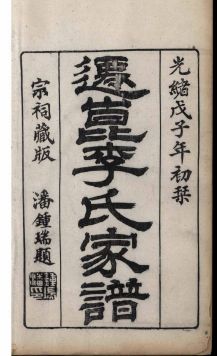 光緒戊子年初栞
遷崑李氏家譜
宗祠藏版
潘鍾瑞題